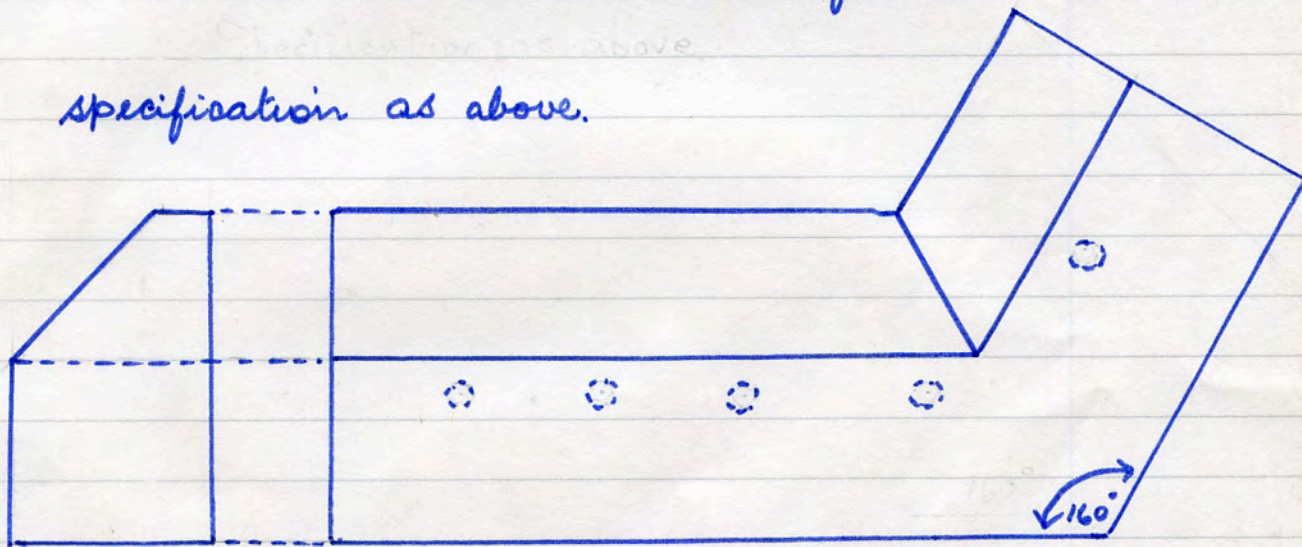 specification as above.
160°